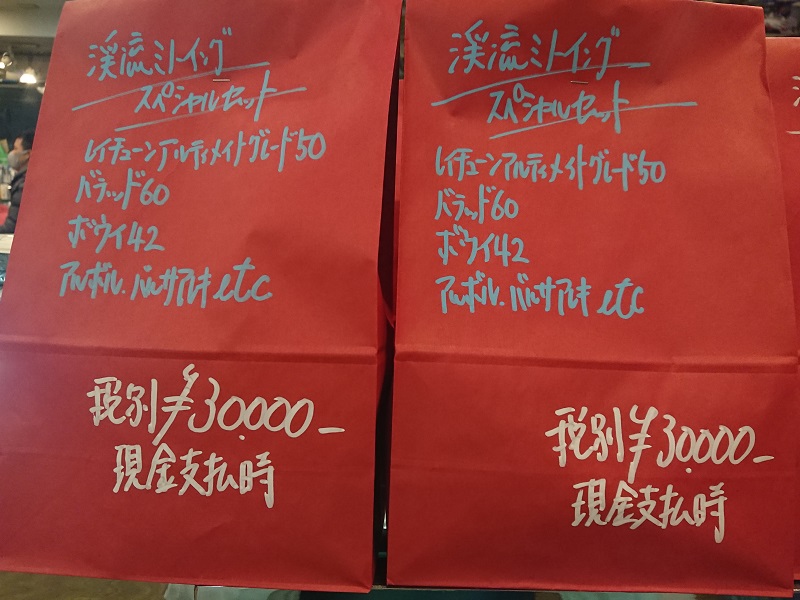 渓流ミノイング
スペシャルセット
レイチューンアルティメイトグレード50
バラッド60
ボウイ42
アルボル、バルサアレキ etc
税別¥30,000-
現金支払時
渓流ミノイング
スペシャルセット
レイチューンアルティメイトグレード50
バラッド60
ボウイ42
アルボル、バルサアレキ etc
税別¥30,000-
現金支払時